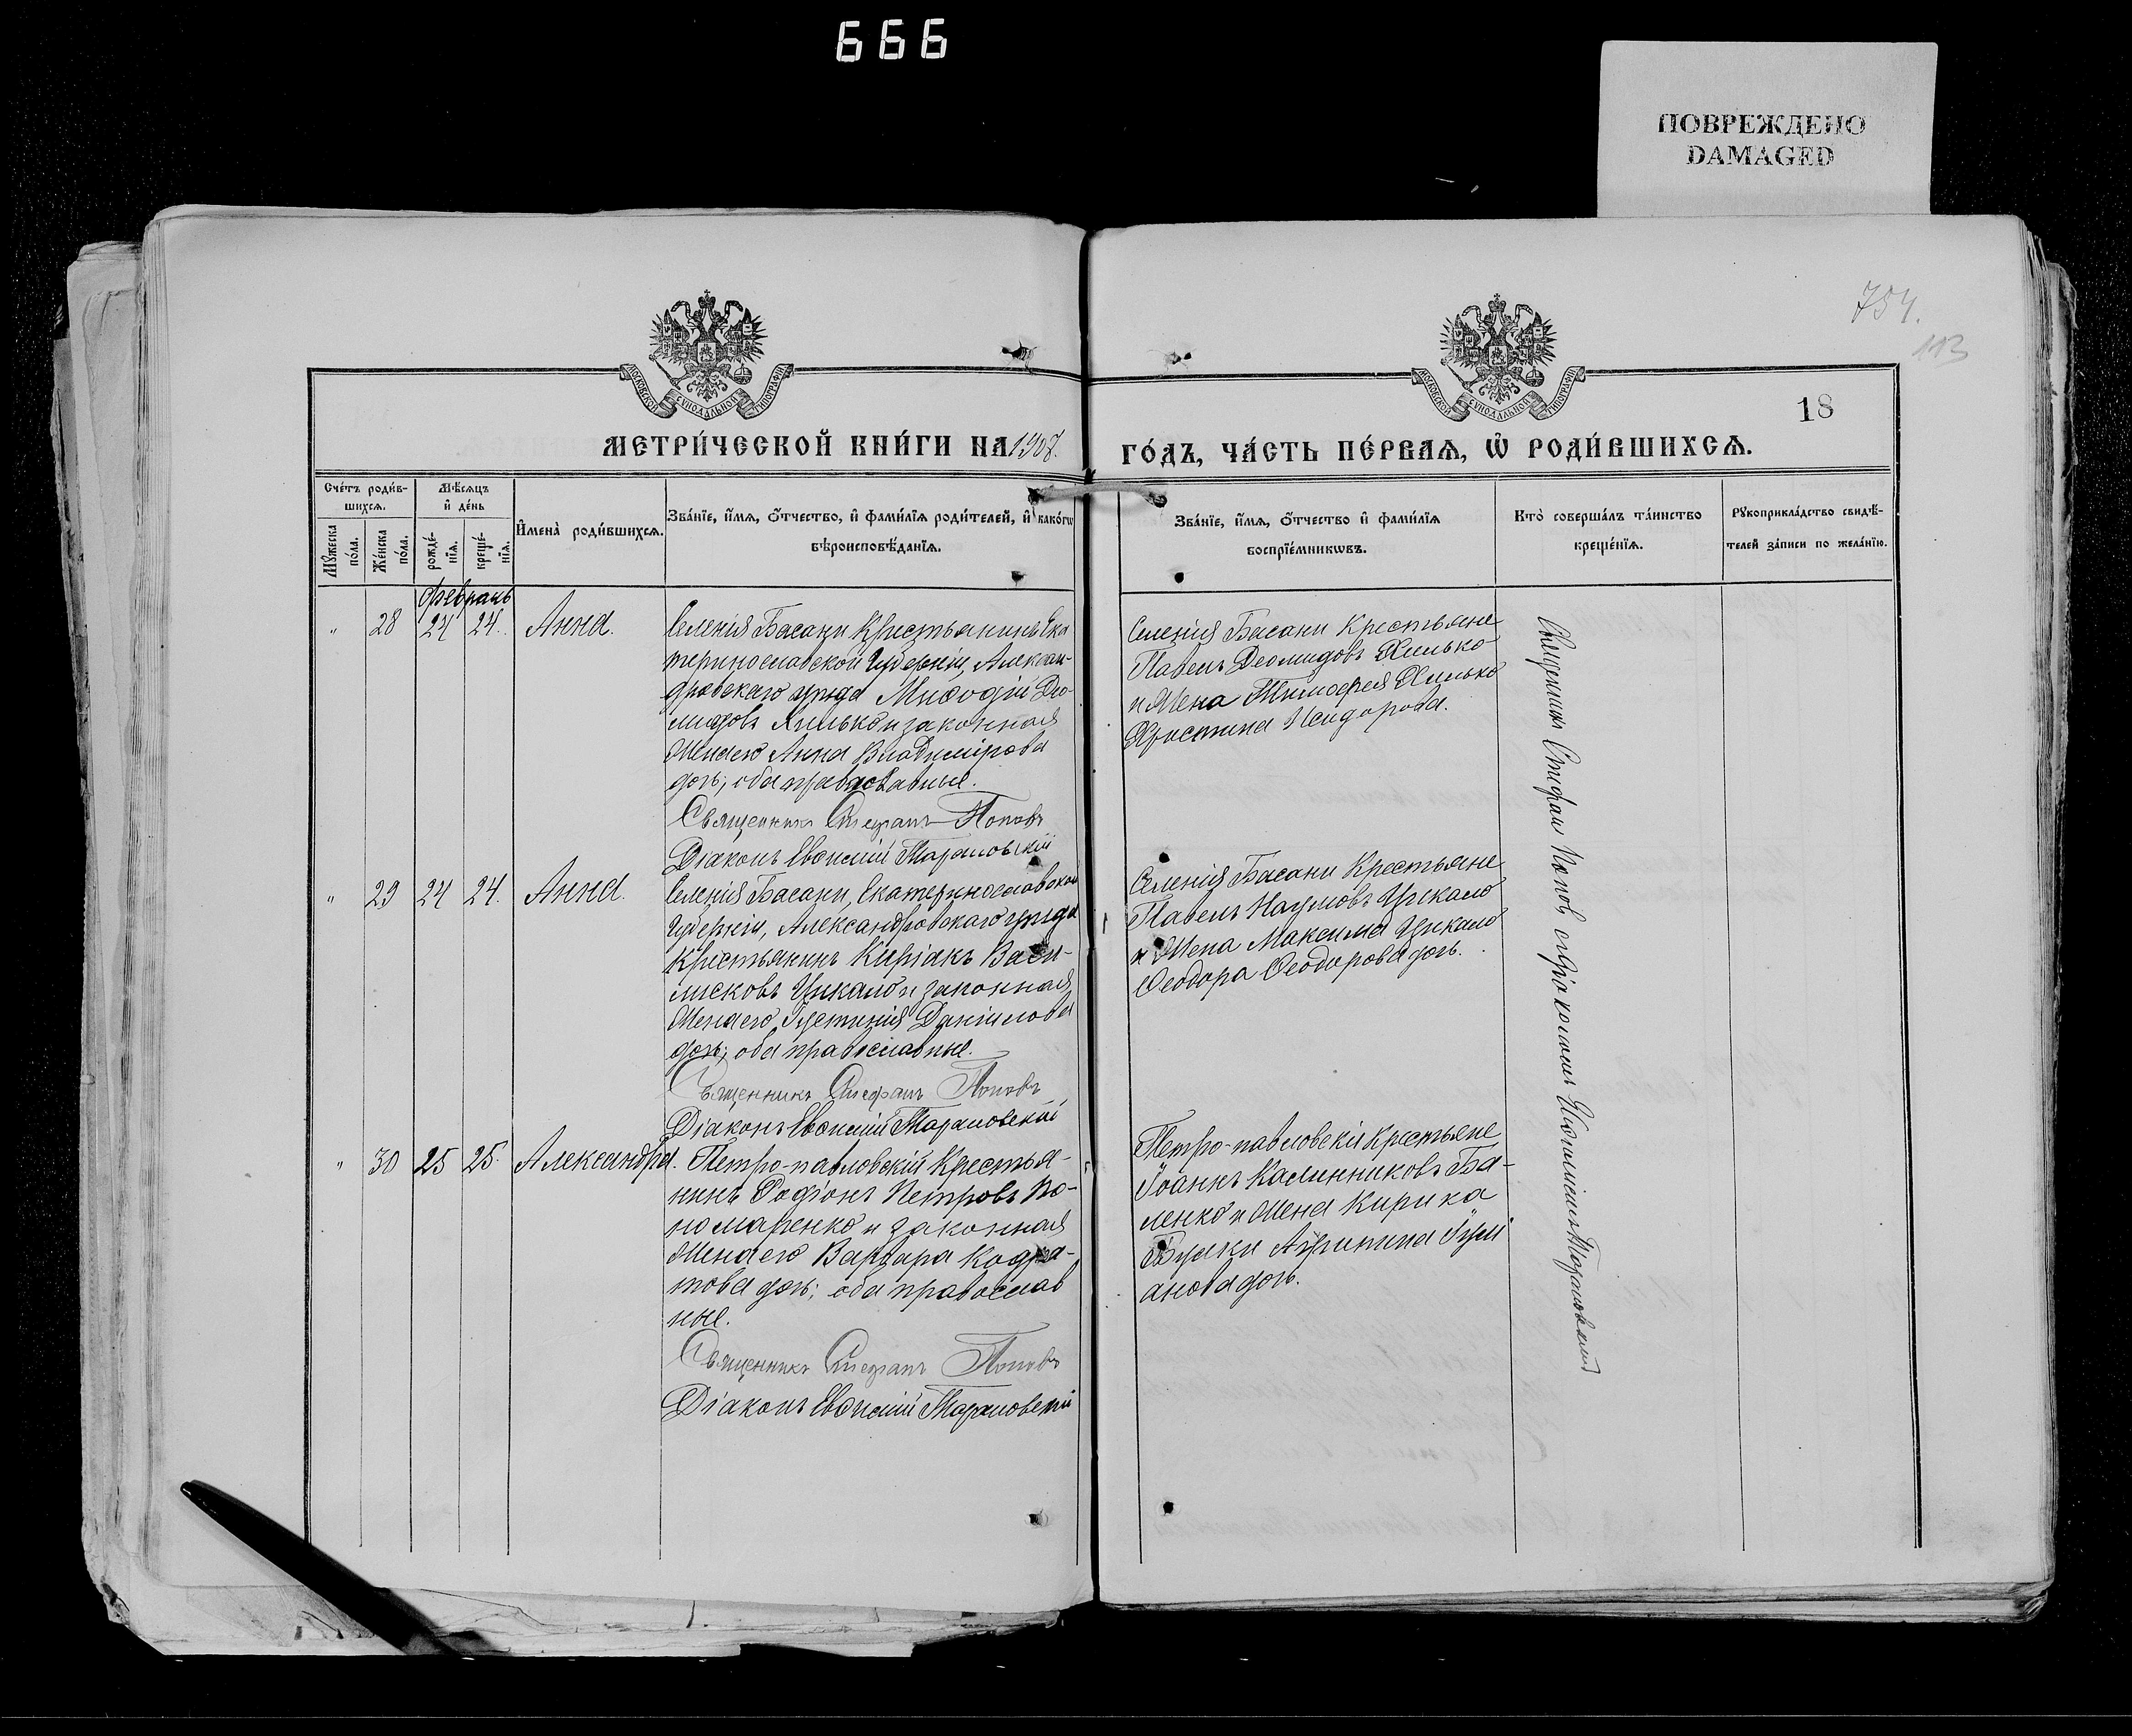 666
ПОВРЕЖДЕНО
DAMAGED
754.
113
18
МОСКОВСКОЙ СѴНОДАЛЬНОЙ ТИПОГРАФІИ
МОСКОВСКОЙ СѴНОДАЛЬНОЙ ТИПОГРАФІИ
МЕТРИ́ЧЕСКОЙ КНИ́ГИ НА 1907.
ГО́ДЪ, ЧА́СТЬ ПЕ́РВАѦ, Ѽ РОДИ́ВШИХСѦ.
Сче́тъ роди́в-
шихсѧ.
Мꙋ́жеска по́ла.
Же́нска по́ла.
Мѣ́сѧцъ
и҆ де́нь
рожде́-
нїѧ.
креще́-
нїѧ.
И҆мена̀ роди́вшихсѧ.
Зва́нїе, и҆́мѧ, ѻ҆́тчество, и҆ фами́лїѧ роди́телей, и҆ како́гѡ
вѣроисповѣ́данїѧ.
Зва́нїе, и҆́мѧ, ѻ҆́тчество и҆ фами́лїѧ
воспрїе́мникѡвъ.
Кто̀ соверша́лъ та́инство
креще́нїѧ.
Рꙋкоприкла́дство свидѣ́-
телей за́писи по жела́нїю.
Февраль
" 28 24 24. Анна.
Селенія Басани Крестьянинъ Ека
теринославской Губерніи, Алексан-
дровскаго уѣзда Мифодій Дио-
мидовъ Хилько и законная
жена его Анна Владимірова
дочь; оба православные.
Священникъ Стефанъ Поповъ
Діаконъ Евфимій Тарановскій
Селенія Басани Крестьяне
Павелъ Деомидовъ Хилько
и жена Тимофея Хилько
Христина Исидорова.
" 29 24 24. Анна.
Селенія Басани, Екатеринославской
Губерніи, Александровскаго уѣзда
Крестьянинъ Киріакъ Васи-
лисковъ Цикало и законная
жена его Іустинія Даніилова
дочь; оба православные.
Священникъ Стефанъ Поповъ
Діаконъ Евфимій Тарановскій
Селенія Басани Крестьяне
Павелъ Наумовъ Цикало
и жена Максима Цикало
Феодора Феодорова дочь.
" 30 25 25. Александра.
Петро-павловскій Крестья-
нинъ Родіонъ Петровъ По-
номаренко и законная
жена его Варвара Кодра-
това дочь; оба православ
ные.
Священникъ Стефанъ Поповъ
Діаконъ Евфимій Тарановскій
Петро-павловскіи Крестьяне
Іоаннъ Калинниковъ Ба-
ленко и жена Кирика
Агрипина Іулі
анова дочь.
Священникъ Стефанъ Поповъ съ діакономъ Тарановскимъ